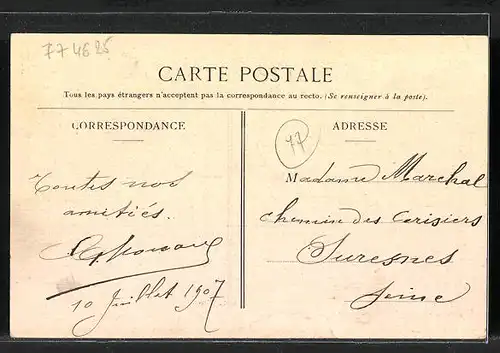 774625
CARTE POSTALE
Tous les pays étrangers n'acceptent pas la correspondance au recto. (Se renseigner à la poste).
CORRESPONDANCE
Toutes nos
amitiés.
10 Juillet 1907
77
ADRESSE
Madame Marchal
chemin des Cerisiers
Suresnes
Seine